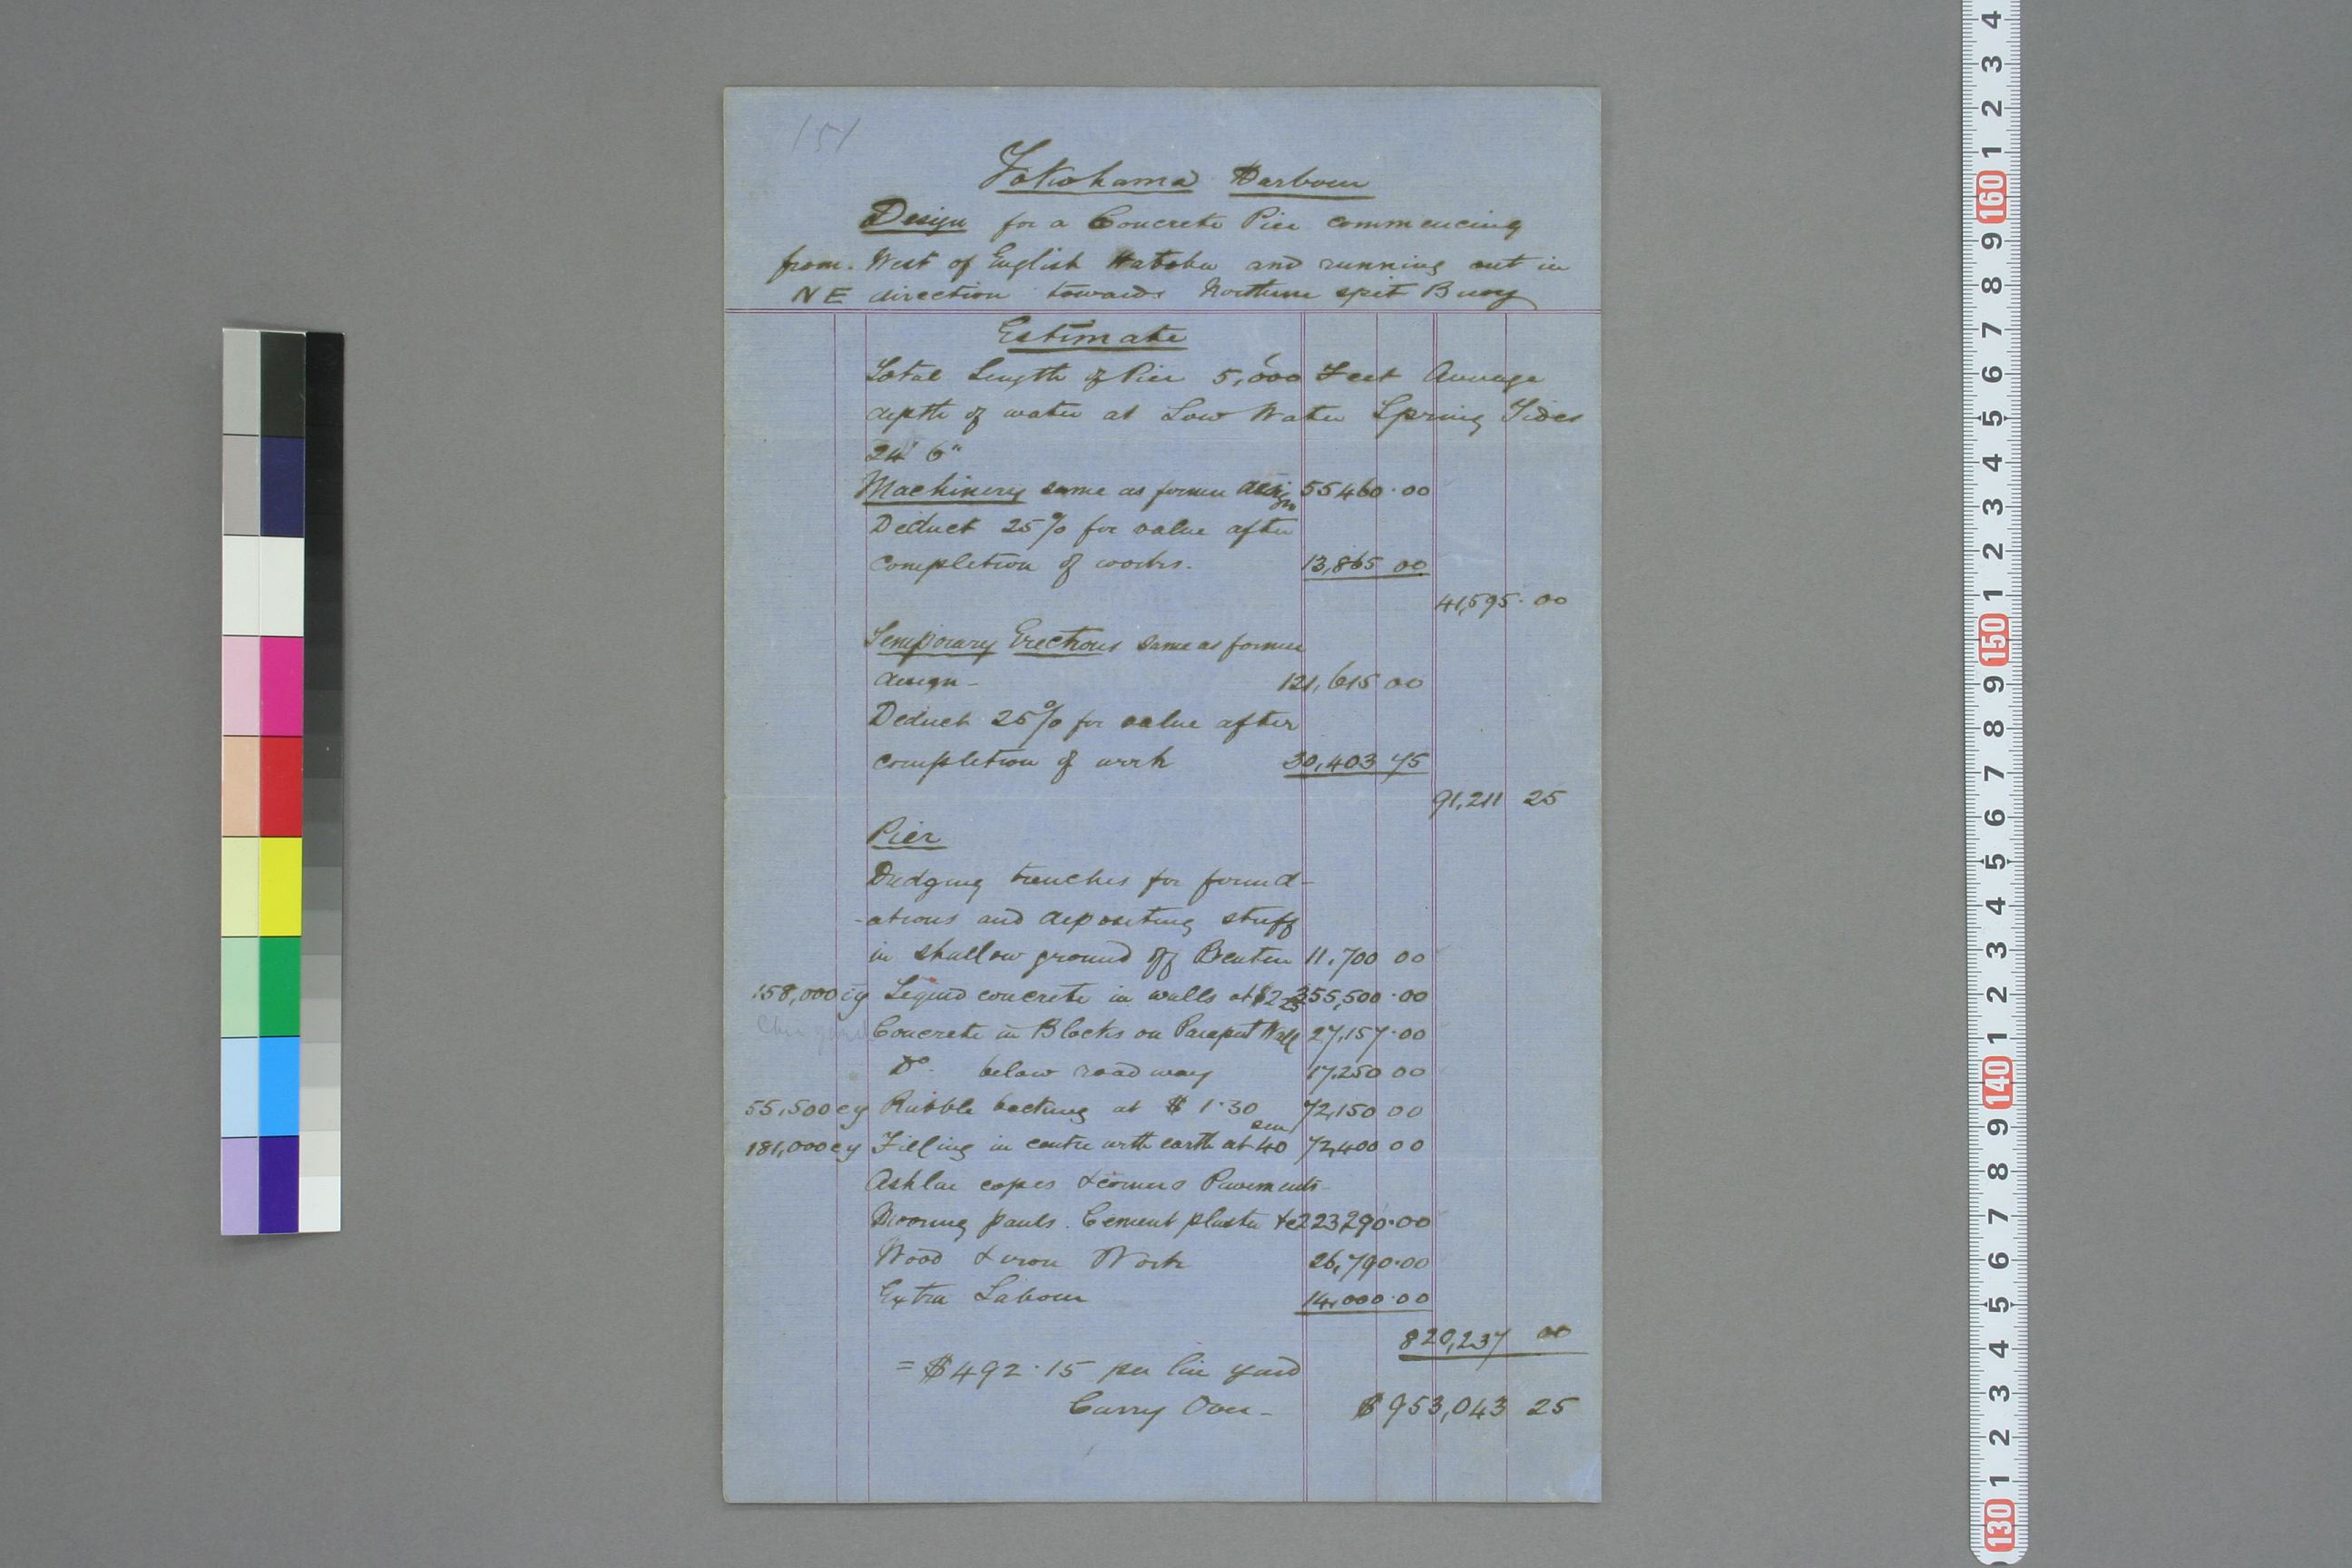 151
Yokohama Harbour
Design for a Concrete Pier commencing
from West of English Hatoba and running out in
NE direction towards Northern spit Buoy
Estimate
Total Length of Pier 5,000 Feet Average
depth of water at Low Water Spring Tides
24' 6"
Machinery same as former design 55460.00
Deduct 25% for value after
completion of works. 13,865 00
41,595.00
Temporary Erections same as former
design - 121,615 00
Deduct 25% for value after
completion of work 30,403 75
91,211 25
Pier
Dredging trenches for found-
-ations and depositing stuff
in shallow ground off Benten 11,700 00
158,000 cy Liquid concrete in walls at $2 25 355,500.00
Concrete in Blocks on Parapet Wall 27,157.00
Do. below road way 17,250 00
55,500 cy Rubble backing at $ 1.30 72,150 00
181,000 cy Filling in centre with earth at 40 sen 72,400 00
Ashlar copes & corners Pavements
Mooring pauls. Cement plaster &c 223,290.00
Wood & iron Work 26,790.00
Extra Labour 14,000.00
820,237 00
= $492.15 per lin yard
Carry Over - $953,043 25
4
3
2
1
160
9
8
7
6
5
4
3
2
1
150
9
8
7
6
5
4
3
2
1
140
9
8
7
6
5
4
3
2
1
130